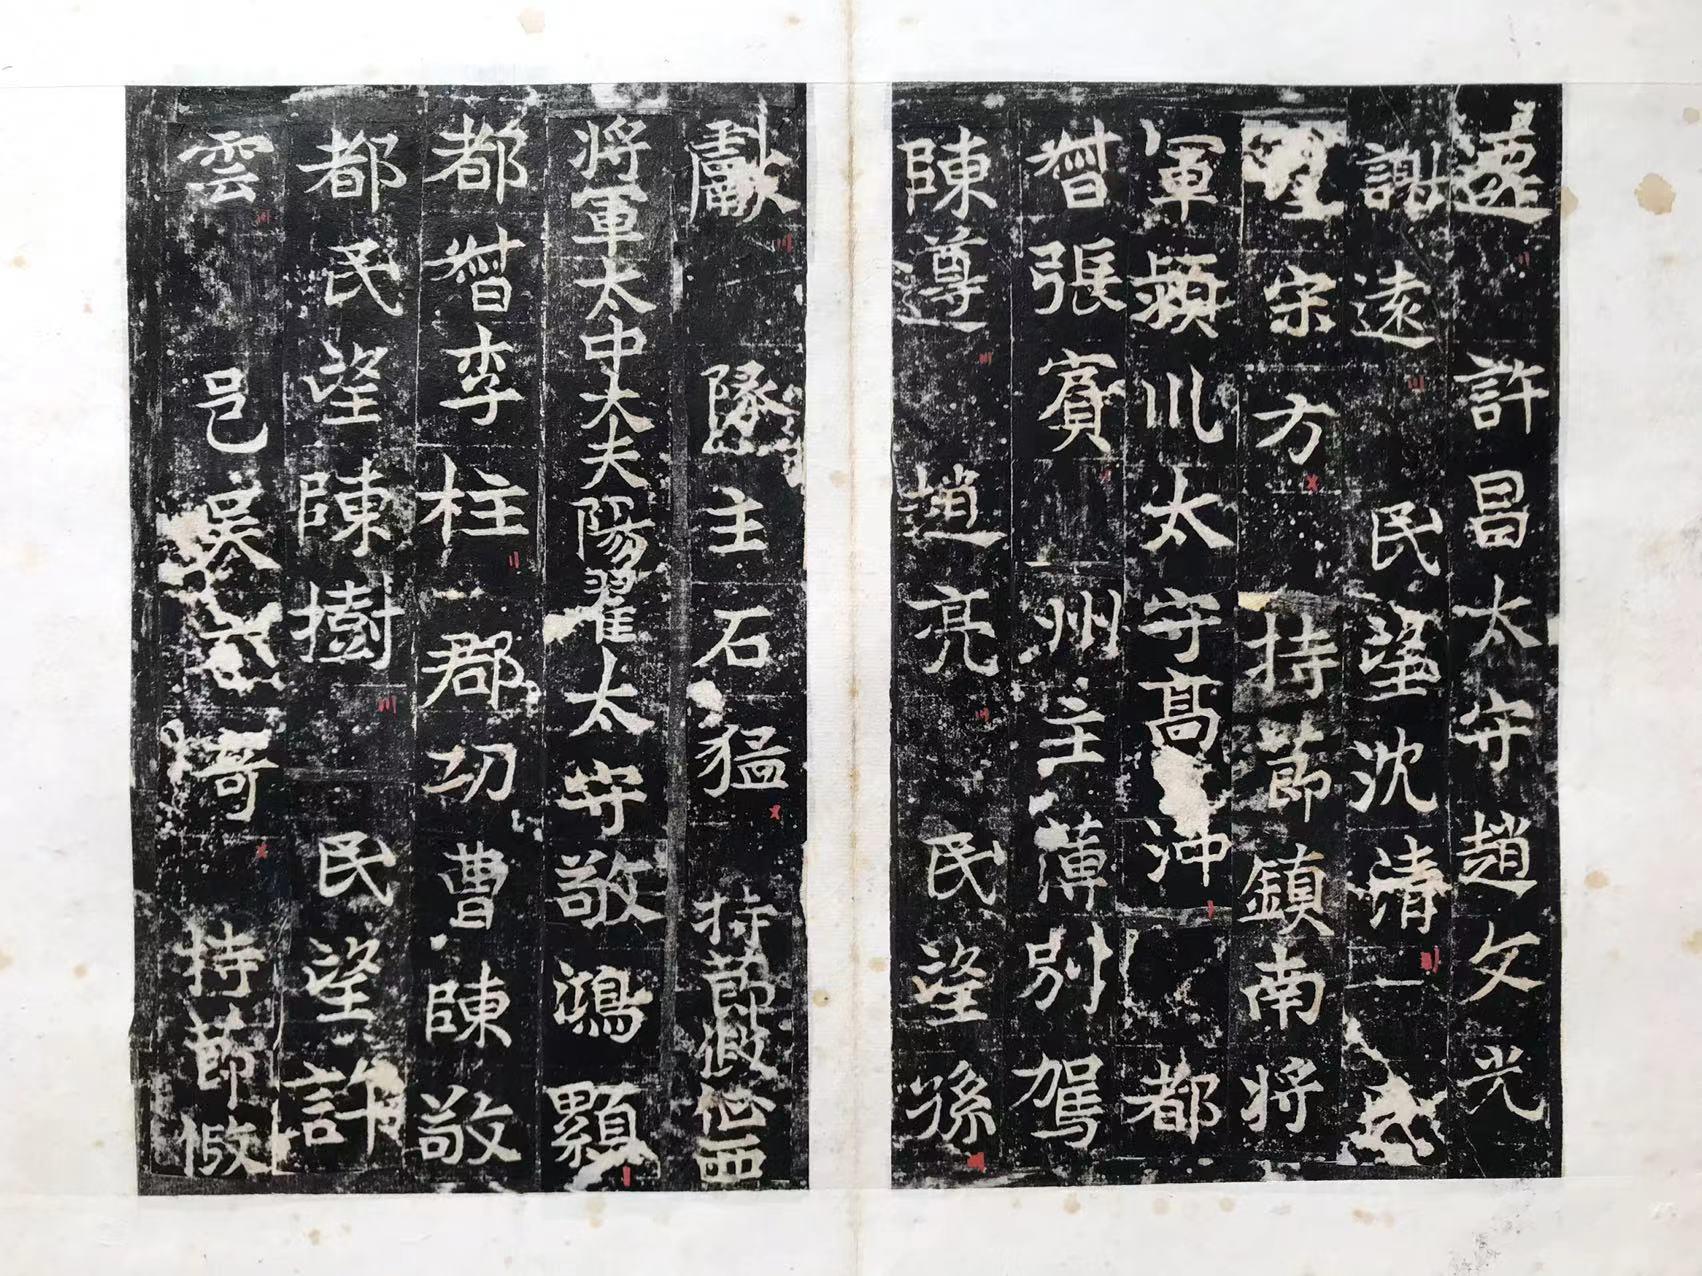 遷許昌太守趙文光
謝遠民望沈清
望宋方持節鎮南將
軍潁川太守高沖都
督張賓州主薄別駕
陳遵趙亮民望孫
獻隊主石猛持節假征西
將軍太中大夫陽翟太守敬鴻顯
都督李柱郡功曹陳敬
都民望陳樹民望許
雲邑吳哥持節假